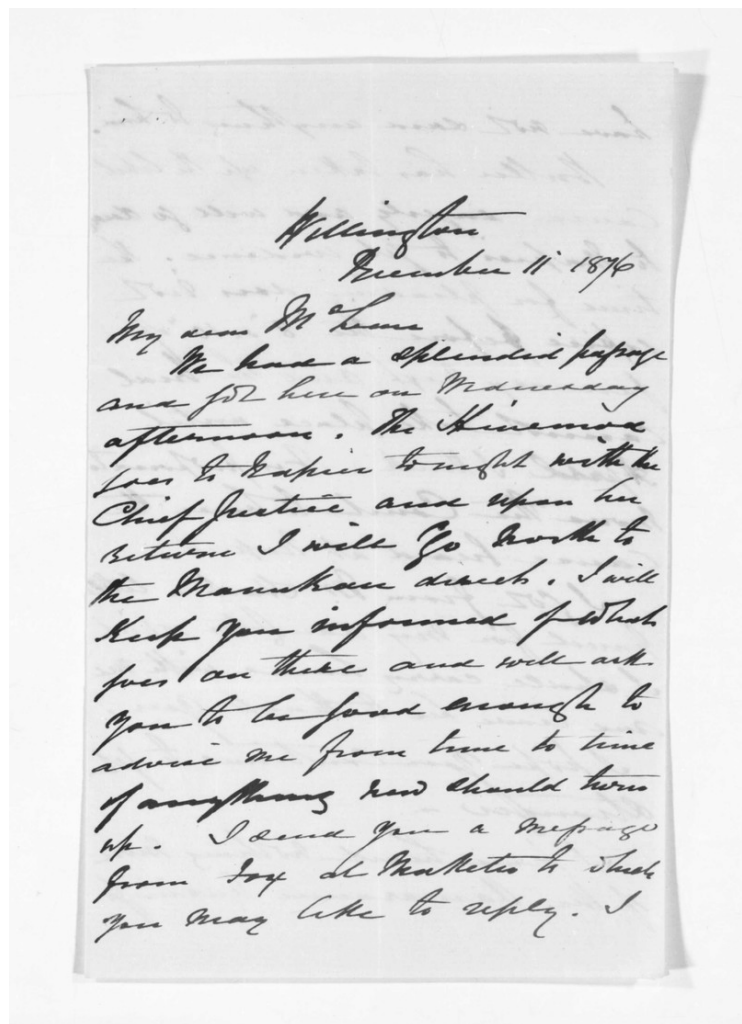 Wellington
December 11 1876
My dear McLean
We had a splendid passage
and got here on Wednesday
afternoon. The Hinemoa
goes to Napier tonight with the
Chief Justice and upon her
return I will go North to
the Manukau direct. I will
keep you informed of what
goes on there and will ask
you to be good enough to
advise me from time to time
if anything new should turn
up. I send you a message
from Fox at Maketu to which
you may like to reply. I